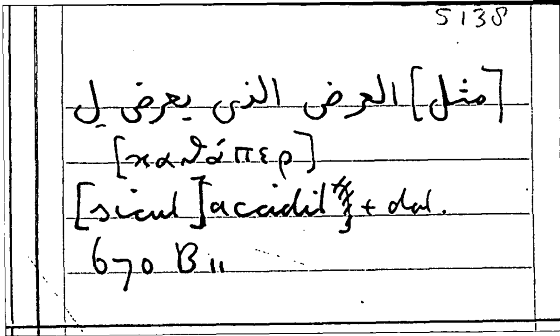 5138
[مثل] العرض الذى يعرض ل
[καθάπερ]
[sicut] accidit + dat.
670 B 11